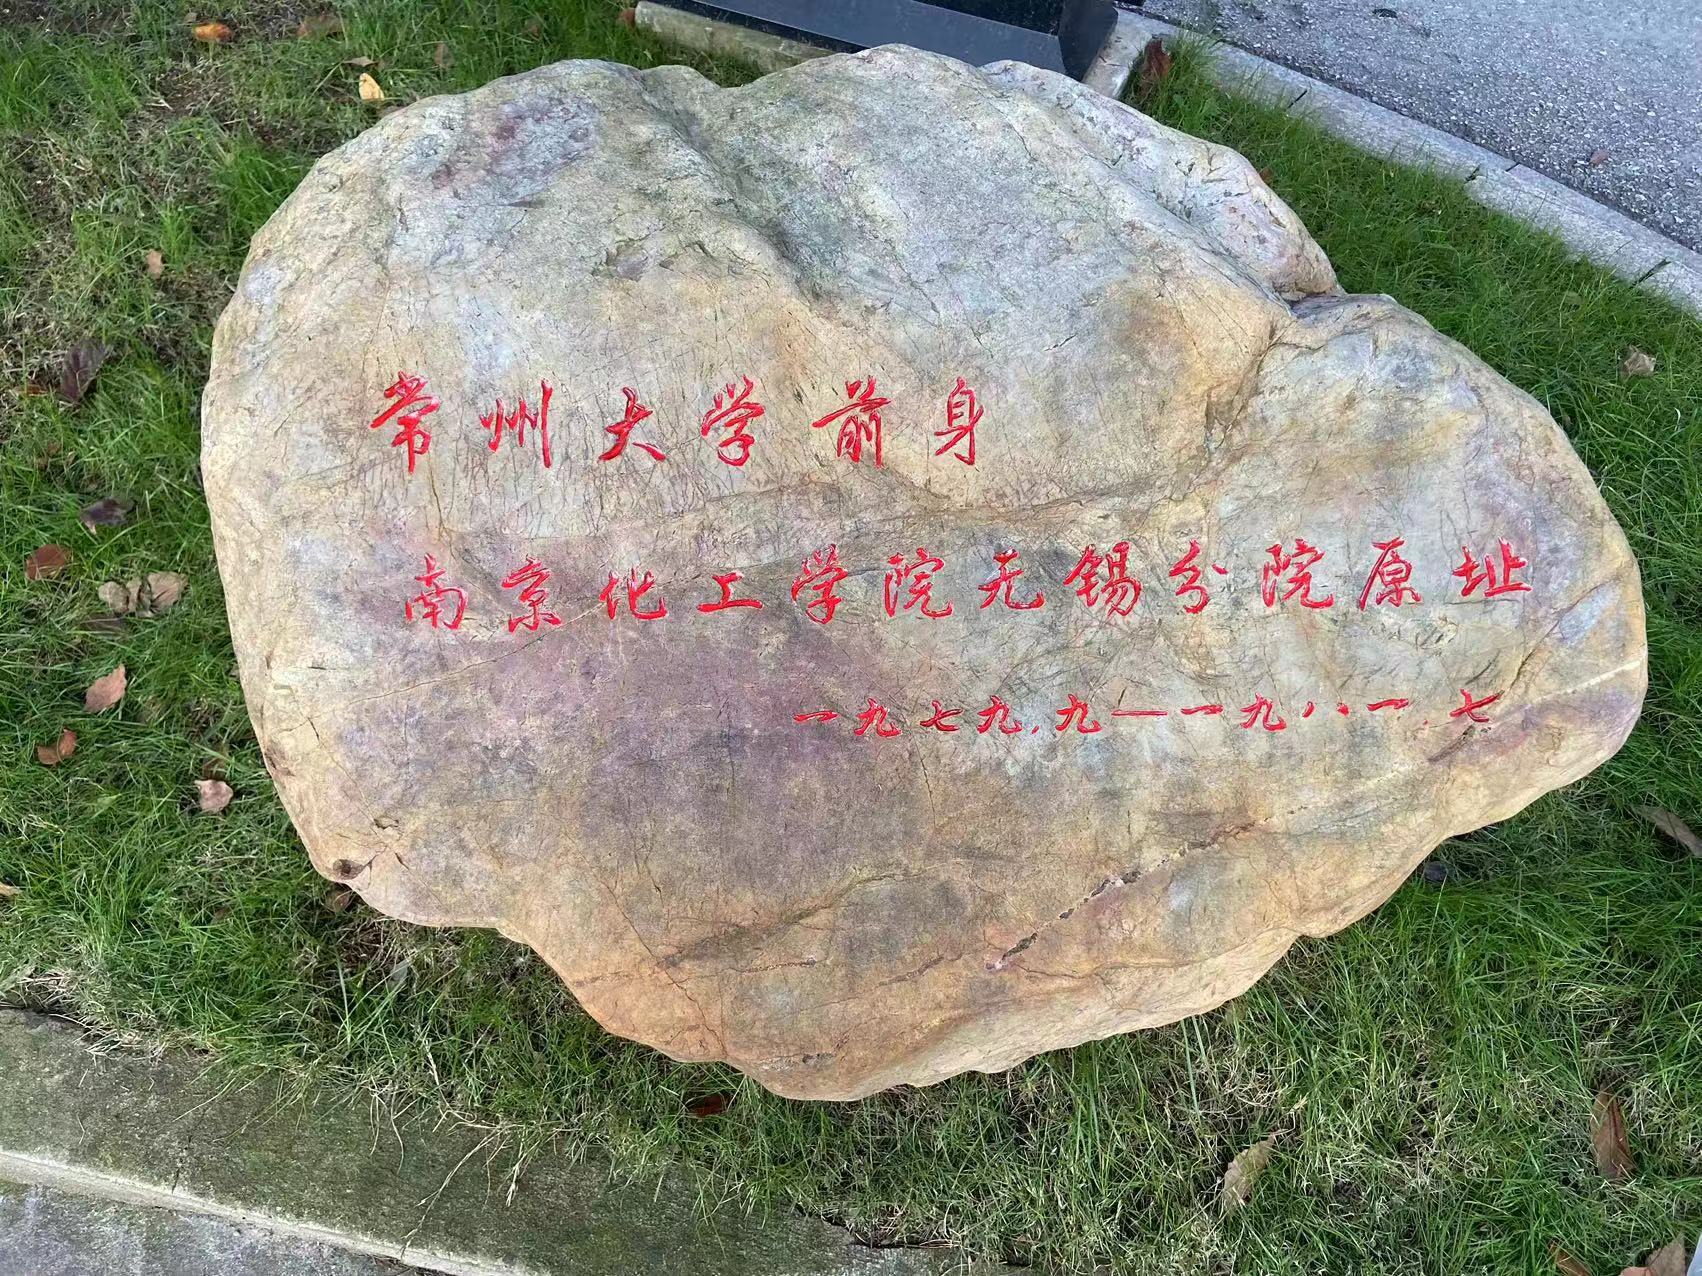 常州大学前身
南京化工学院无锡分院原址
一九七九.九—一九八一.七